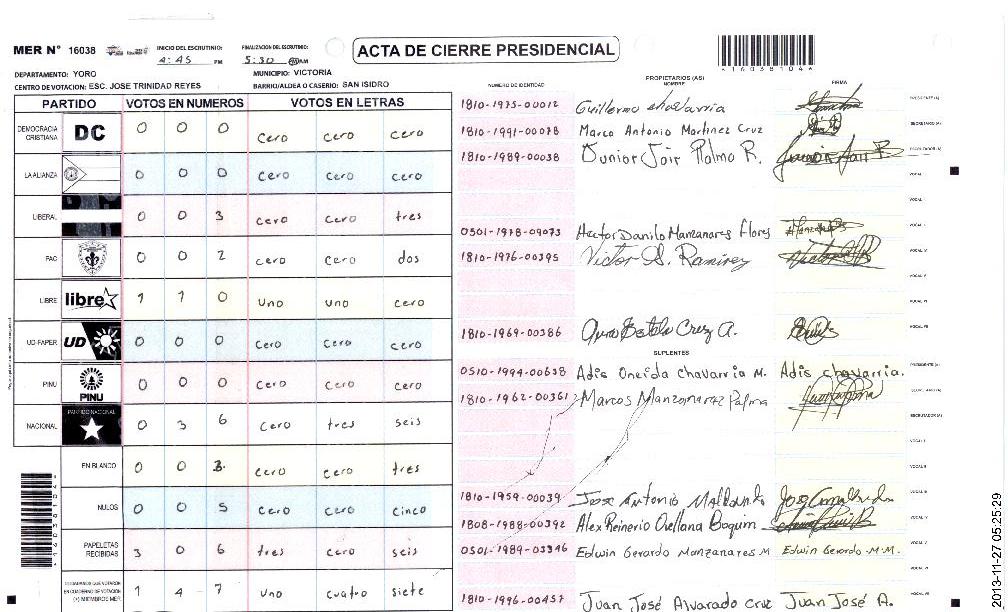 MER N° 16038
INICIO DEL ESCRUTINIO: 4:45 PM
FINALIZACION DEL ESCRUTINIO: 5:30 AM
ACTA DE CIERRE PRESIDENCIAL
*16038104*
DEPARTAMENTO: YORO
MUNICIPIO: VICTORIA
CENTRO DE VOTACION: ESC. JOSE TRINIDAD REYES
BARRIO/ALDEA O CASERIO: SAN ISIDRO
PARTIDO VOTOS EN NUMEROS VOTOS EN LETRAS
DEMOCRACIA CRISTIANA DC 0 0 0 cero cero cero
LA ALIANZA 0 0 0 cero cero cero
LIBERAL 0 0 3 cero cero tres
PAC 0 0 2 cero cero dos
LIBRE libre 1 1 0 uno uno cero
UD-FAPER UD 0 0 0 cero cero cero
PINU PINU 0 0 0 cero cero cero
NACIONAL PARTIDO NACIONAL 0 3 6 cero tres seis
EN BLANCO 0 0 3 cero cero tres
NULOS 0 0 5 cero cero cinco
PAPELETAS RECIBIDAS 3 0 6 tres cero seis
CIUDADANOS QUE VOTARON EN CUADERNO DE VOTACION (+) MIEMBROS MER 1 4 7 uno cuatro siete
NUMERO DE IDENTIDAD PROPIETARIOS (AS) NOMBRE FIRMA
1810-1975-00012 Guillermo chavarria PRESIDENTE (A)
1810-1991-00078 Marco Antonio Martinez Cruz SECRETARIO (A)
1810-1989-00038 Junior Jair Palma R. ESCRUTADOR (A)
VOCAL I
0501-1978-09073 Hector Danilo Manzanares Flores
1810-1976-00395 Victor A. Ramirez
1810-1969-00386 Cruz A.
SUPLENTES
0510-1994-00638 Adis Oneida Chavarria M. Adis chavarria. PRESIDENTE (A)
1810-1962-00361 Marcos Manzanarez Palma SECRETARIO (A)
ESCRUTADOR (A)
1810-1959-00039 Jose Antonio Maldonado
1808-1988-00392 Alex Reinerio Orellana
0501-1989-03346 Edwin Gerardo Manzanares M Edwin Gerardo M.M.
1810-1996-00457 Juan José Alvarado Cruz Juan José A.
2013-11-27 05:25:29